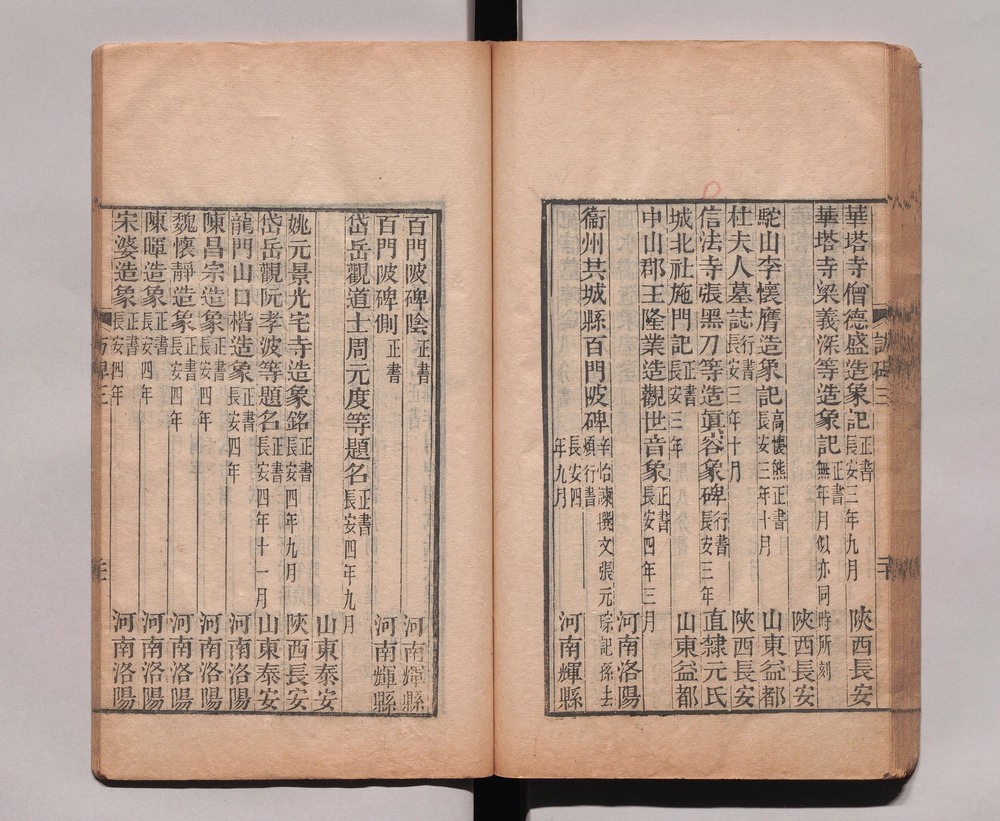 華塔寺僧德盛造象記 正書 長安三年九月 陝西長安
華塔寺梁義深等造象記 正書 無年月似亦同時所刻
陝西長安
駝山李懷膺造象記 高懷熊正書 長安三年十月 山東益都
杜夫人墓誌 行書 長安三年十月 陝西長安
信法寺張黑刀等造真容象碑 行書 長安三年 直隸元氏
城北社施門記 正書 長安三年 山東益都
中山郡王隆業造觀世音象 正書 長安四年三月
河南洛陽
衞州共城縣百門陂碑 辛怡諫撰文張元琮記孫去煩行書 長安四年九月 河南輝縣
訪碑三
二十
百門陂碑陰 正書 河南輝縣
百門陂碑側 正書 河南輝縣
岱岳觀道士周元度等題名 正書 長安四年九月
山東泰安
姚元景光宅寺造象銘 正書 長安四年九月 陝西長安
岱岳觀阮孝波等題名 正書 長安四年十一月 山東泰安
龍門山口楷造象 正書 長安四年 河南洛陽
陳昌宗造象 正書 長安四年 河南洛陽
魏懷靜造象 正書 長安四年 河南洛陽
陳暉造象 正書 長安四年 河南洛陽
宋婆造象 正書 長安四年 河南洛陽